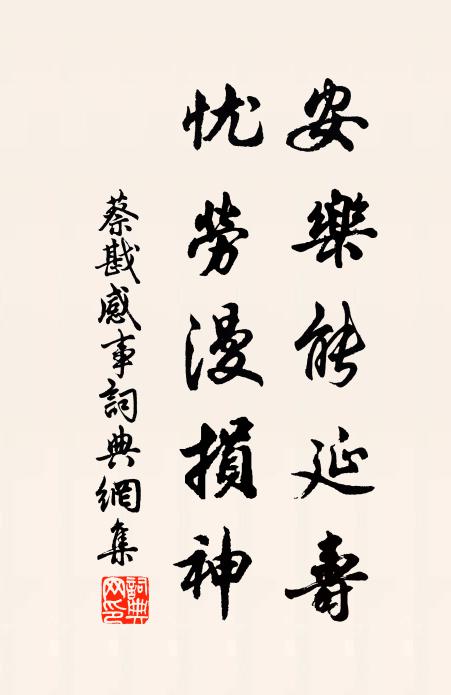 安樂能延壽
忧勞漫損神
蔡戡感事詞典網集
詞典网印